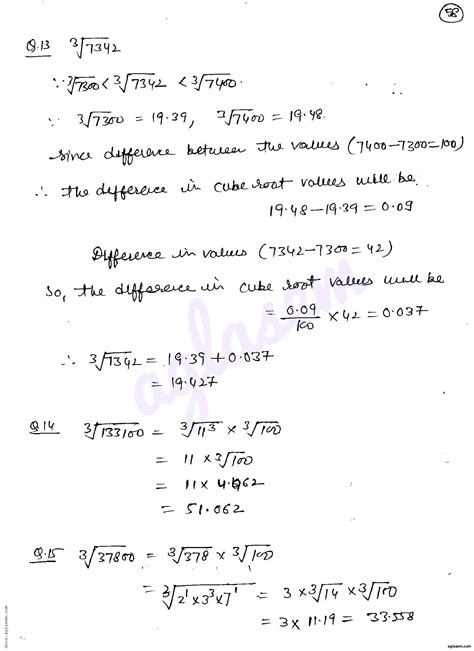 58
Q.13 ∛7342
∵ ∛7300 < ∛7342 < ∛7400.
∵ ∛7300 = 19.39, ∛7400 = 19.48.
since difference between the values (7400-7300=100)
∴ the difference in cube root values will be.
19.48-19.39 = 0.09
Difference in values (7342-7300 = 42)
So, the difference in cube root values will be
= 0.09/100 × 42 = 0.037
∴ ∛7342 = 19.39 + 0.037
= 19.427
Q.14 ∛133100 = ∛11³ × ∛100
= 11 × ∛100
= 11 × 4.662
= 51.062
Q.15 ∛37800 = ∛378 × ∛100
= ∛2¹×3³×7¹ = 3 × ∛14 × ∛100
= 3 × 11.19 = 33.558
aglasem
docs.aglasem.com
aglasem.com